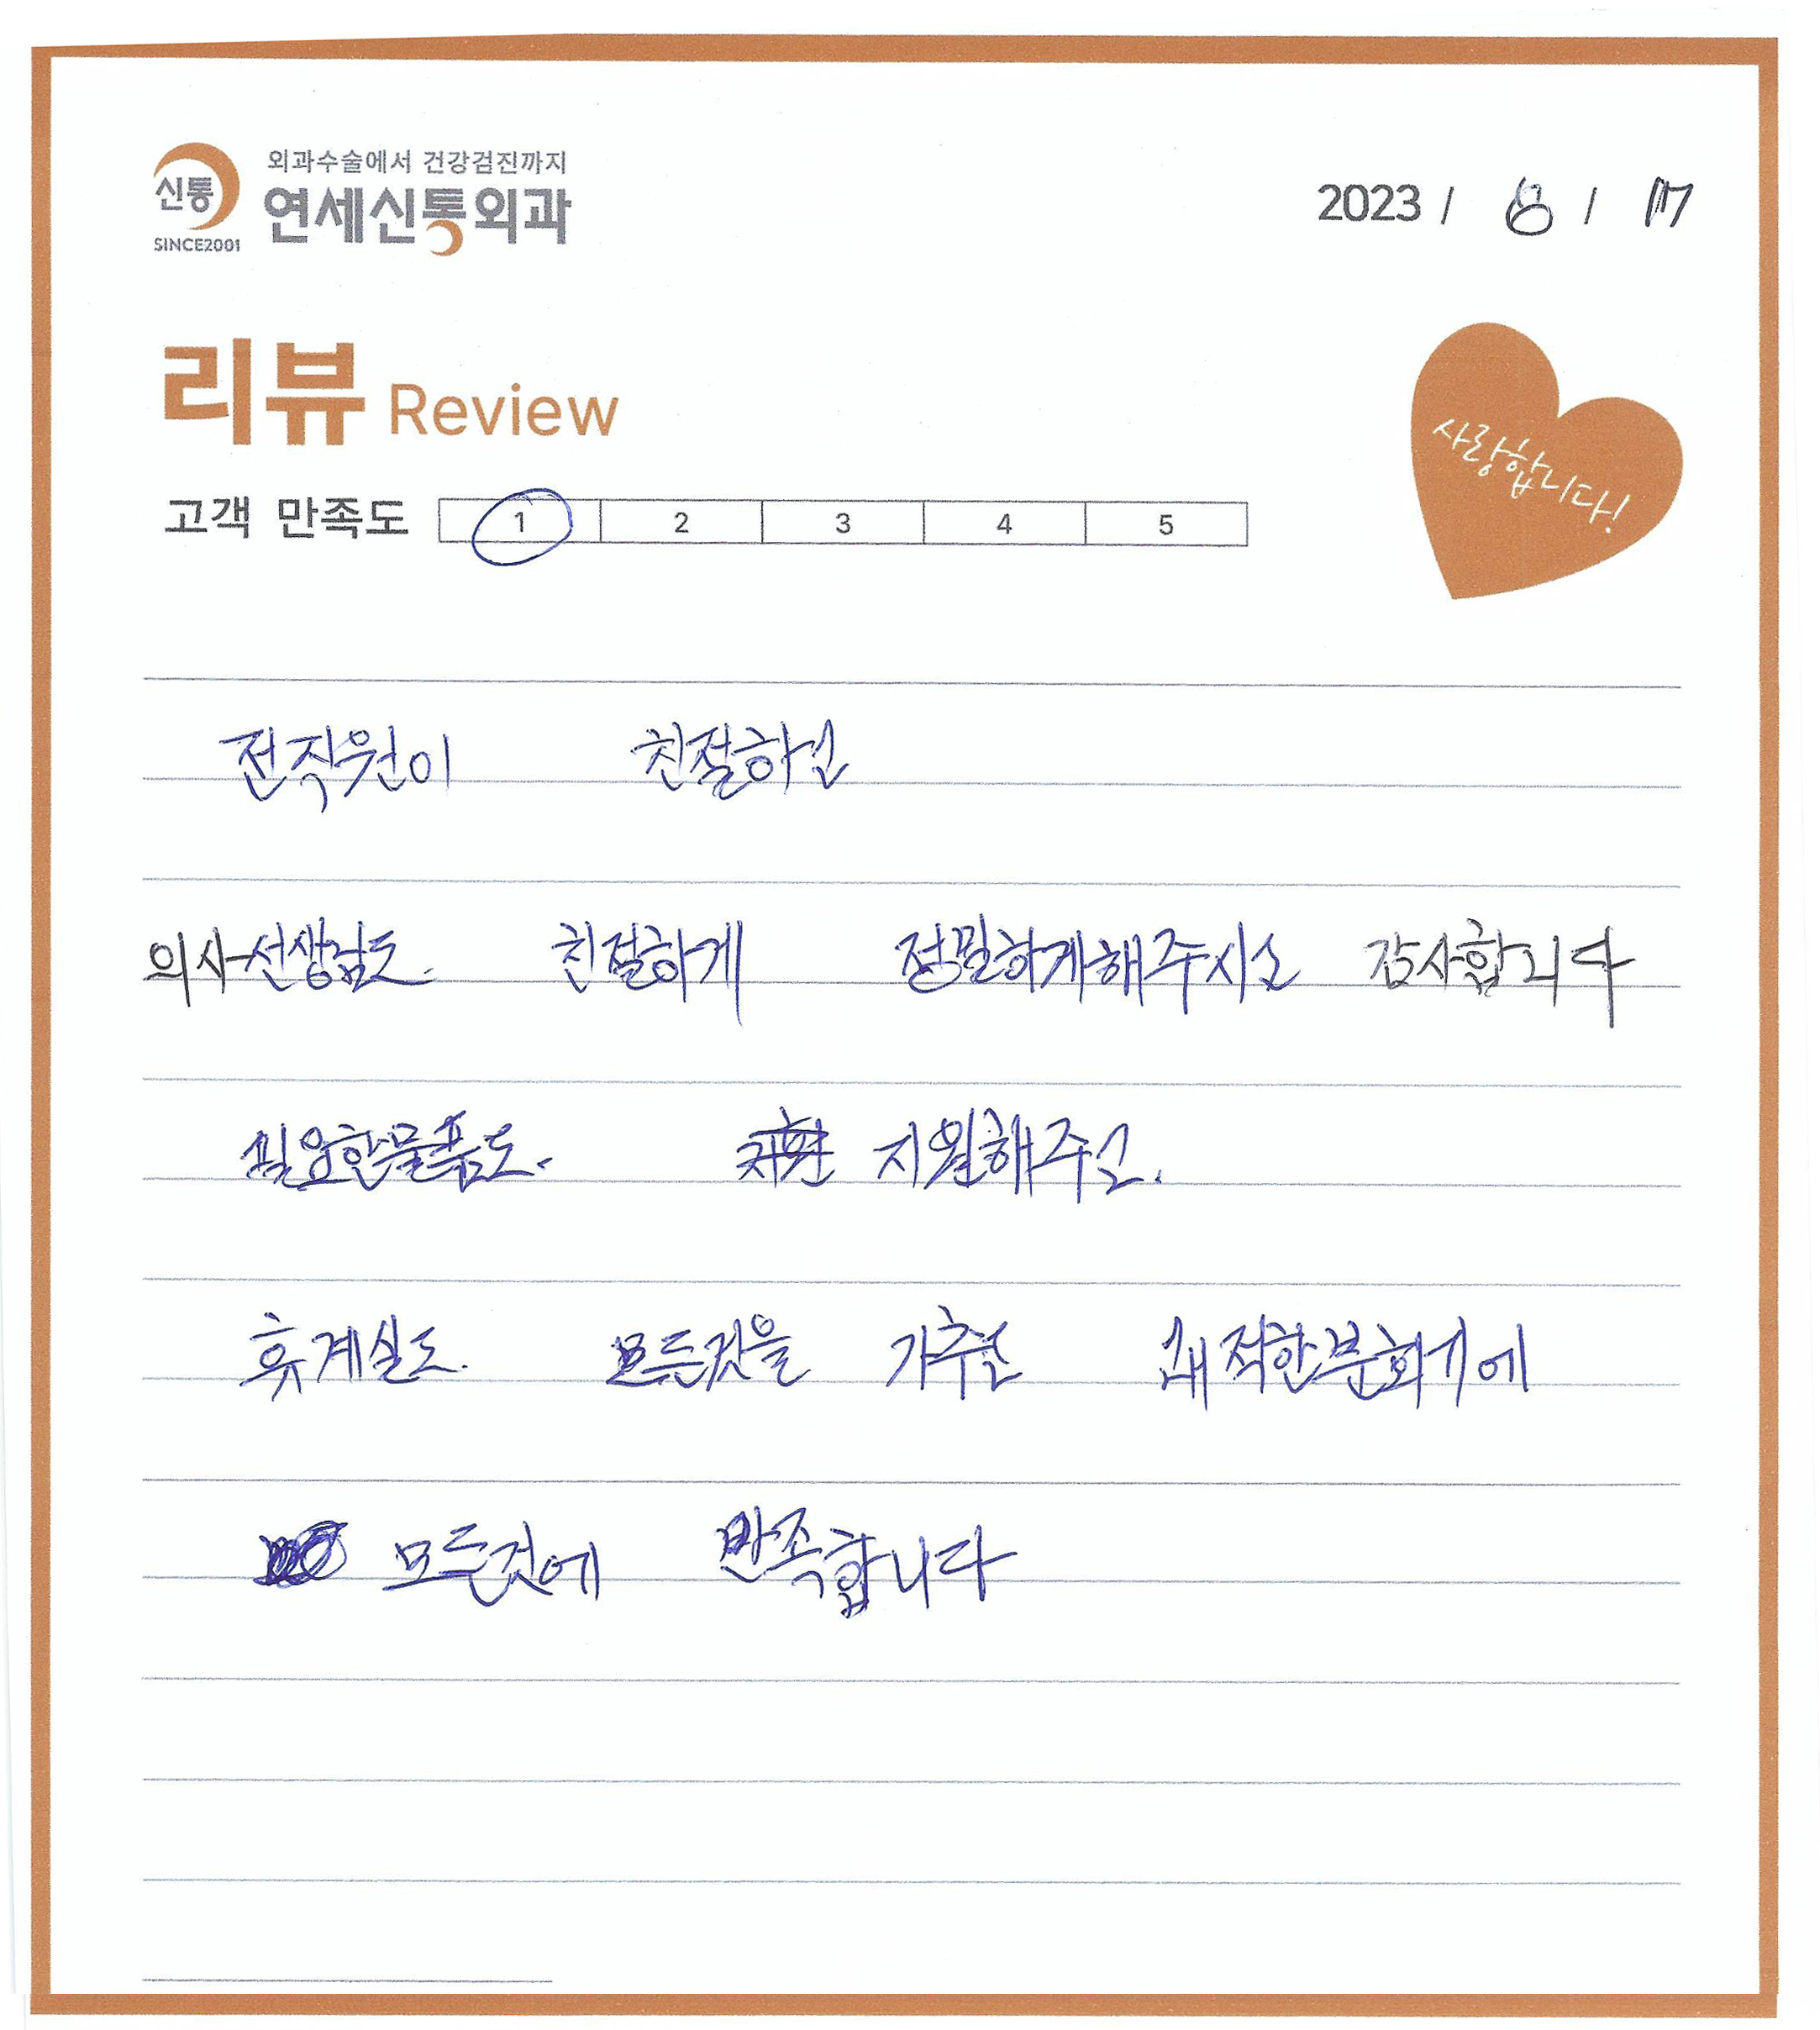 신통
SINCE2001
외과수술에서 건강검진까지
연세신통외과
2023 / 8 / 17
리뷰 Review
사랑합니다!
고객 만족도 1 2 3 4 5
전직원이 친절하고
의사선생님도. 친절하게 정밀하게해주시고 감사합니다
필요한물품도. 지원해주고.
휴계실도. 모든것을 가추고 쾌적한분회기에
모든것에 만족합니다